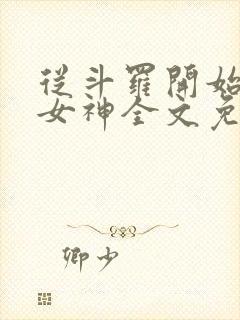 從斗羅開始
女神全文免
卿少